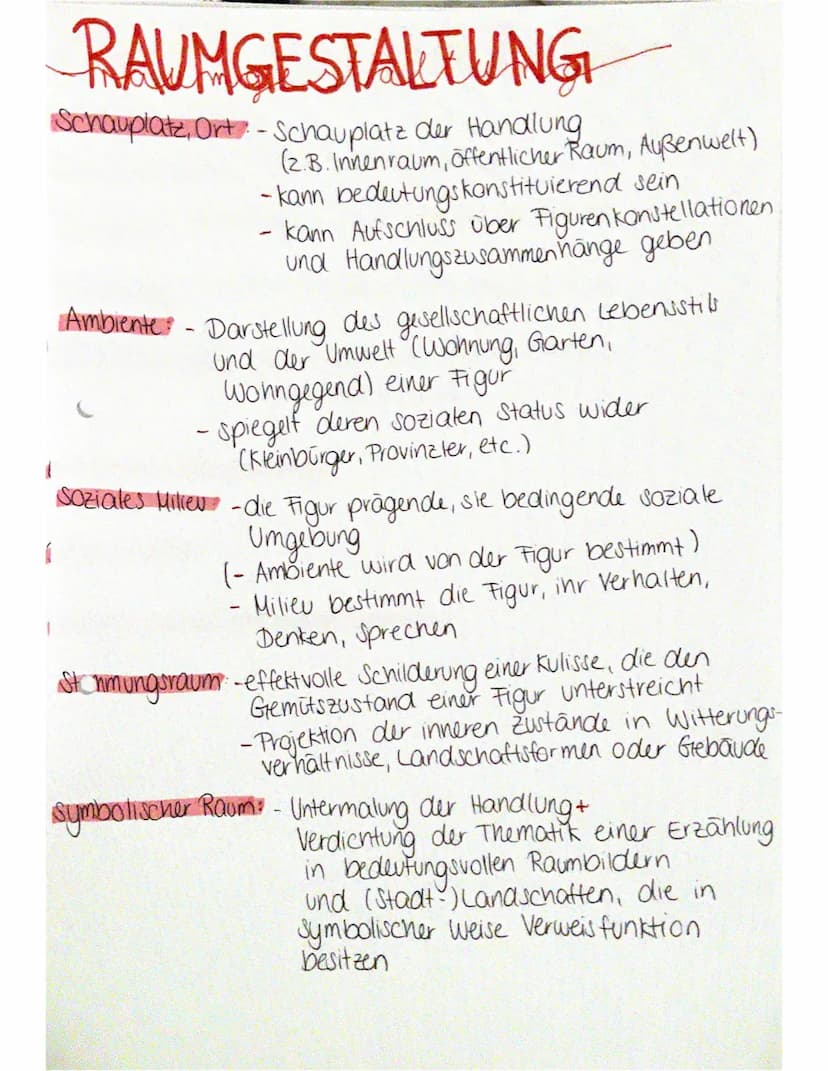 RAUMGESTALTUNG
Schauplatz, Ort: - Schauplatz der Handlung
(z.B. Innenraum, öffentlicher Raum, Außenwelt)
- kann bedeutungskonstituierend sein
- kann Aufschluss über Figurenkonstellationen
und Handlungszusammenhänge geben
Ambiente: - Darstellung des gesellschaftlichen Lebensstils
und der Umwelt (Wohnung, Garten,
Wohngegend) einer Figur
- spiegelt deren sozialen Status wider
(Kleinbürger, Provinzler, etc.)
Soziales Milieu - die Figur prägende, sie bedingende soziale
Umgebung
(- Ambiente wird von der Figur bestimmt)
- Milieu bestimmt die Figur, ihr Verhalten,
Denken, Sprechen
Stimmungsraum: - effektvolle Schilderung einer Kulisse, die den
Gemütszustand einer Figur unterstreicht
- Projektion der inneren Zustände in Witterungs-
verhältnisse, Landschaftsformen oder Gebäude
Symbolischer Raum: - Untermalung der Handlung +
Verdichtung der Thematik einer Erzählung
in bedeutungsvollen Raumbildern
und (Stadt-)Landschaften, die in
symbolischer Weise Verweisfunktion
besitzen